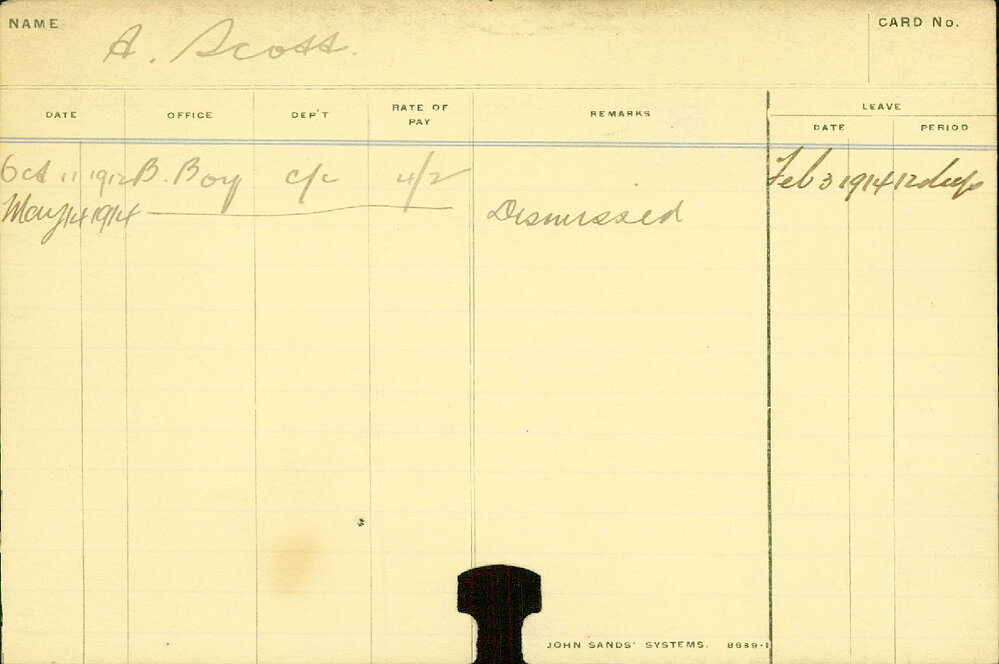 NAME A. Scott. CARD No.
DATE OFFICE DEP'T RATE OF PAY REMARKS LEAVE
DATE PERIOD
Oct 11 1912 B. Boy C/C 4/2 Feb 3 1914 12 days
May 14 1914 Dismissed
JOHN SANDS' SYSTEMS. 8689-1